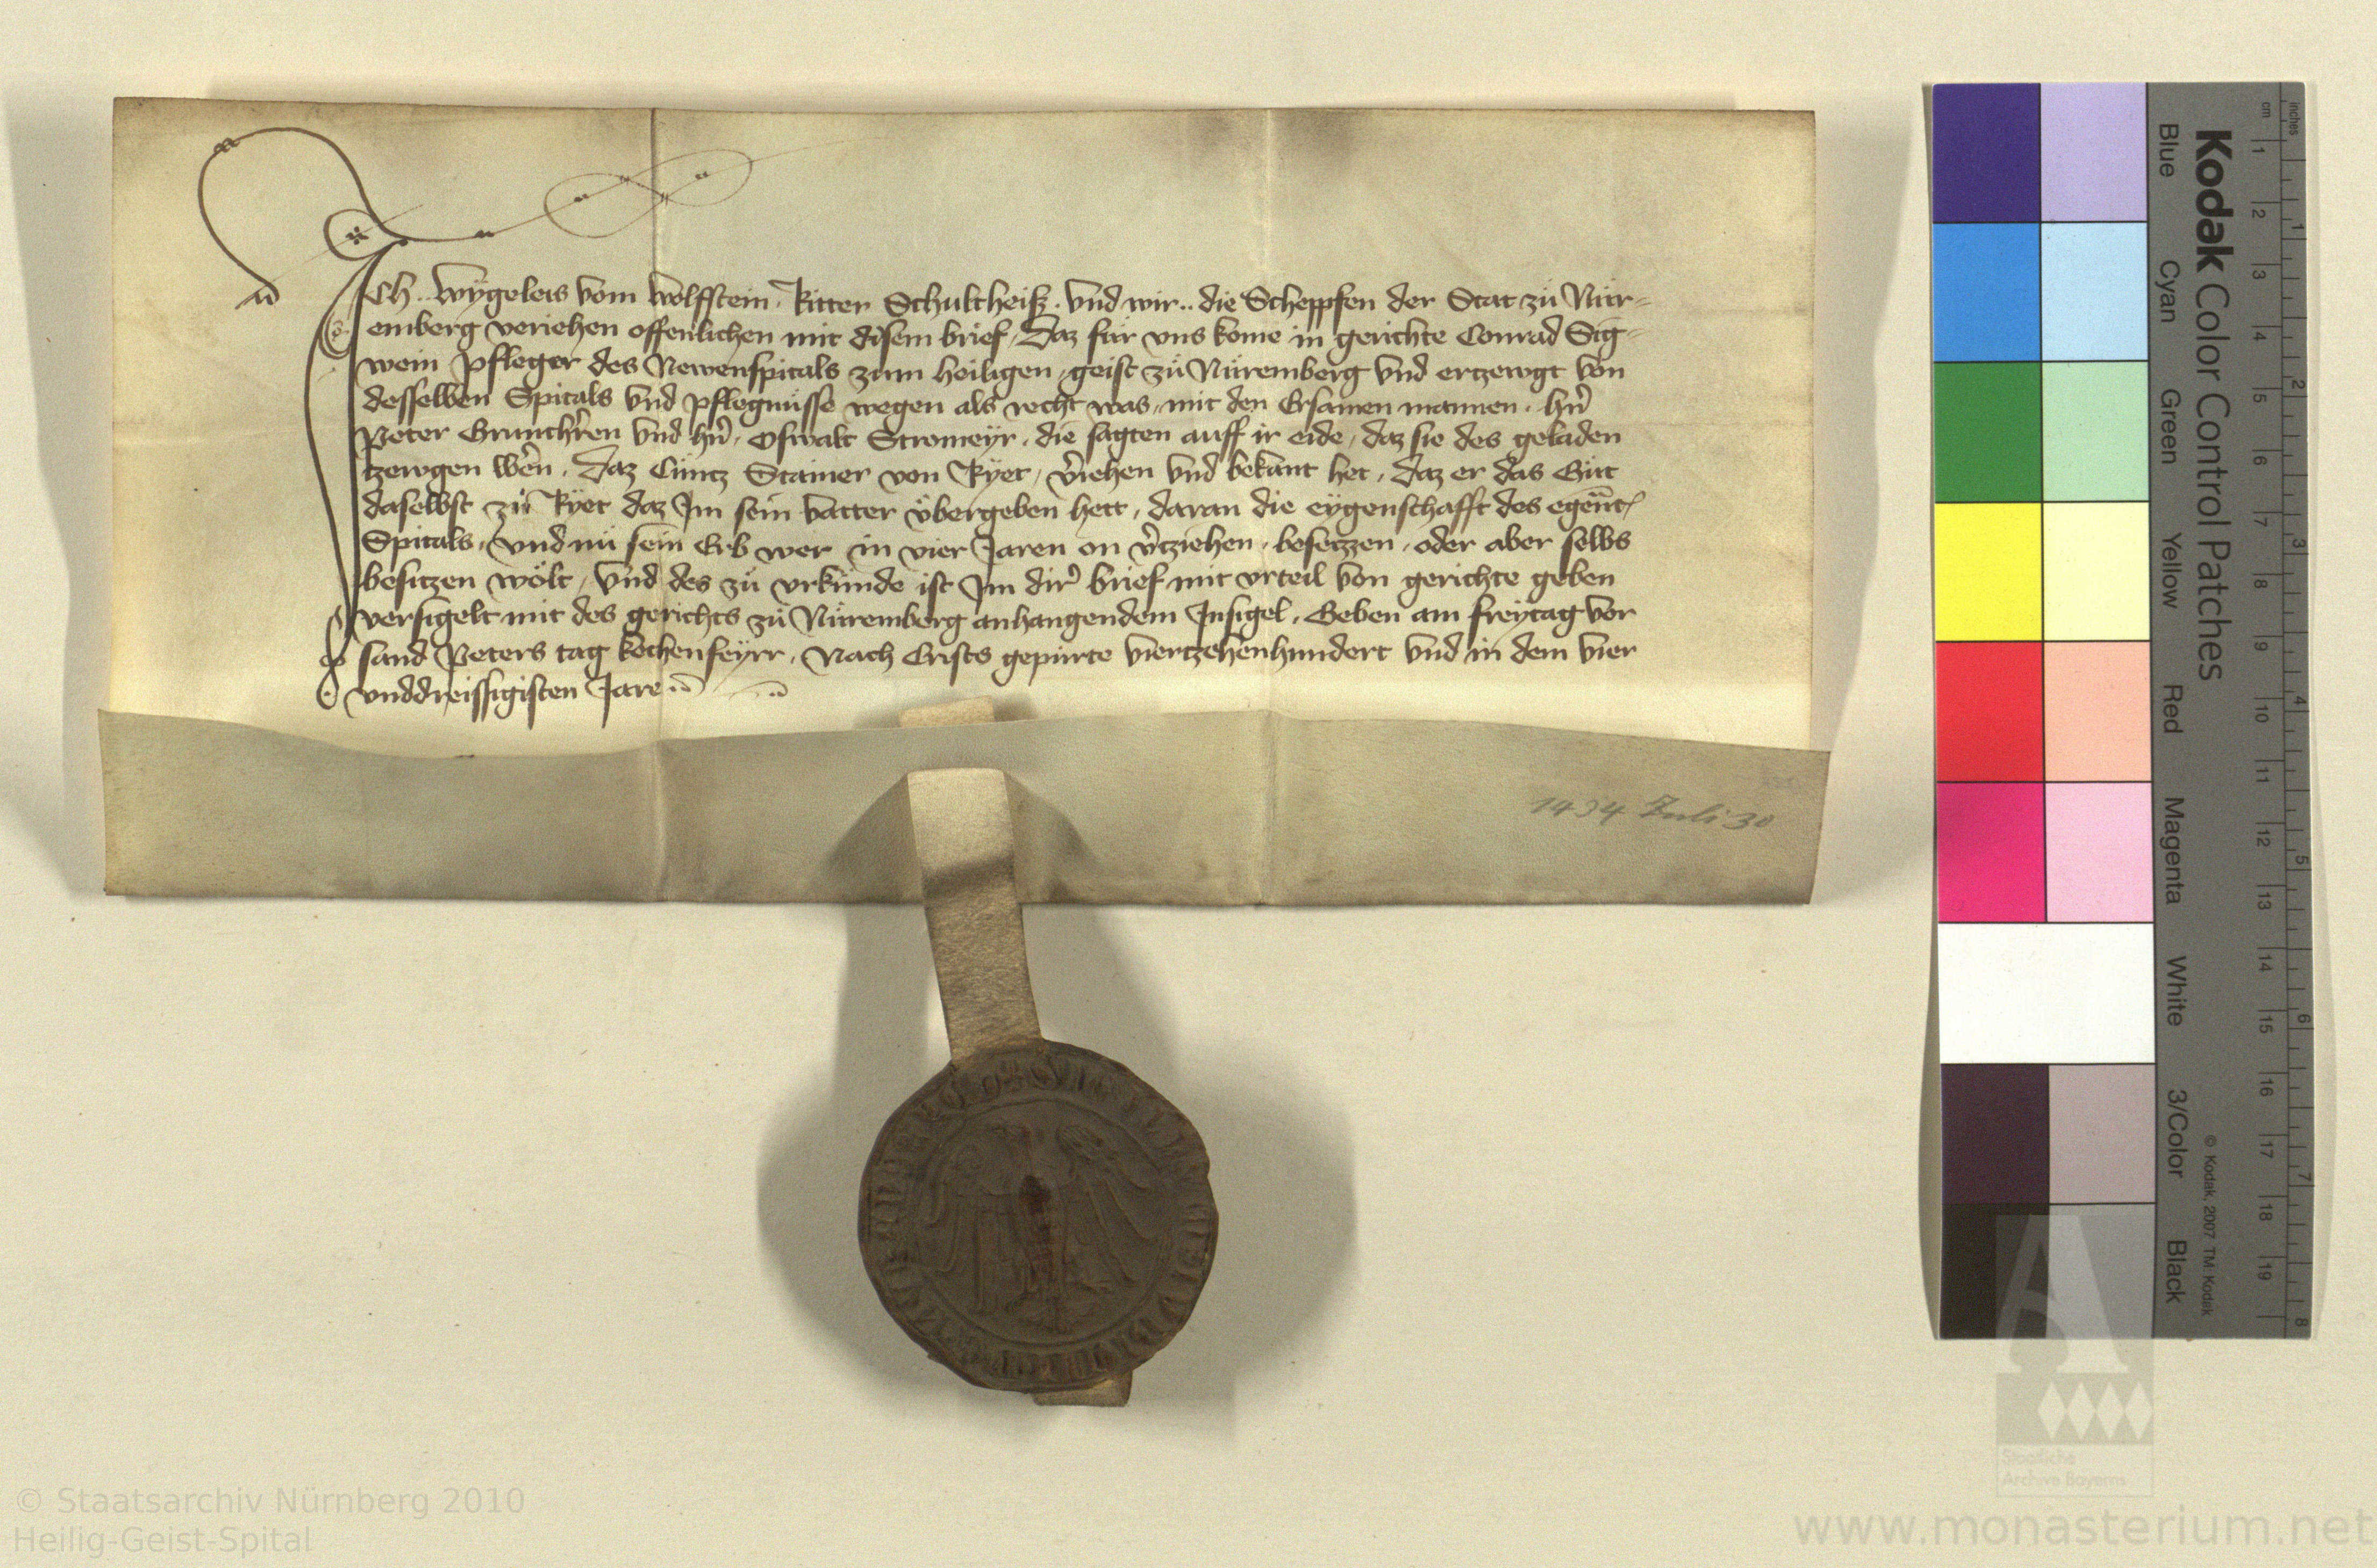 Ich .. Wygeleis vom Wolfstein, Ritter Schultheiß. vnd wir .. die Scheppfen der Stat zu Nür=
emberg veriehen offenlichen mit disem brief, Daz für vns kome in gerichte Conrad Sig=
wein Pfleger des Newenspitals zum heiligen geist zu Nüremberg vnd ertzewgt von
desselben Spitals vnd pflegnüsse wegen als recht was, mit den Ersamen mannen. hrn̄
Peter Grunthr̄en vnd hrn̄. Oswalt Stromeyr. die sagten auff ir eide, daz sie des geladen
tzewgen wern. Daz Cüntz Stainer von Ryet, v̄iehen vnd bekant het, daz er das Gut
daselbst zu Ryet daz Im sein vatter vbergeben hett, daran die eygenschafft des egen̄t
Spitals, vnd nu sein Erb wer in vier Jaren on v̄tziehen, besetzen, oder aber selbs
besitzen wölt, vnd des zu vrkunde ist Im dir̄ brief mit vrteil von gerichte geben
versigelt mit des gerichts zu Nüremberg anhangendem Insigel. Geben am freytag vor
sand Peters tag kethenfeyrr, Nach Crists gepurte viertzehenhundert vnd in dem vier
vnddreissigisten Jare
1434 Juli 30
Kodak Color Control Patches
Blue
Cyan
Green
Yellow
Red
Magenta
White
3/Color
Black
© Kodak, 2007 TM: Kodak
inches
1 2 3 4 5 6 7 8
cm
1 2 3 4 5 6 7 8 9 10 11 12 13 14 15 16 17 18 19
Staatliche
Archive Bayerns
© Staatsarchiv Nürnberg 2010
Heilig-Geist-Spital
www.monasterium.net